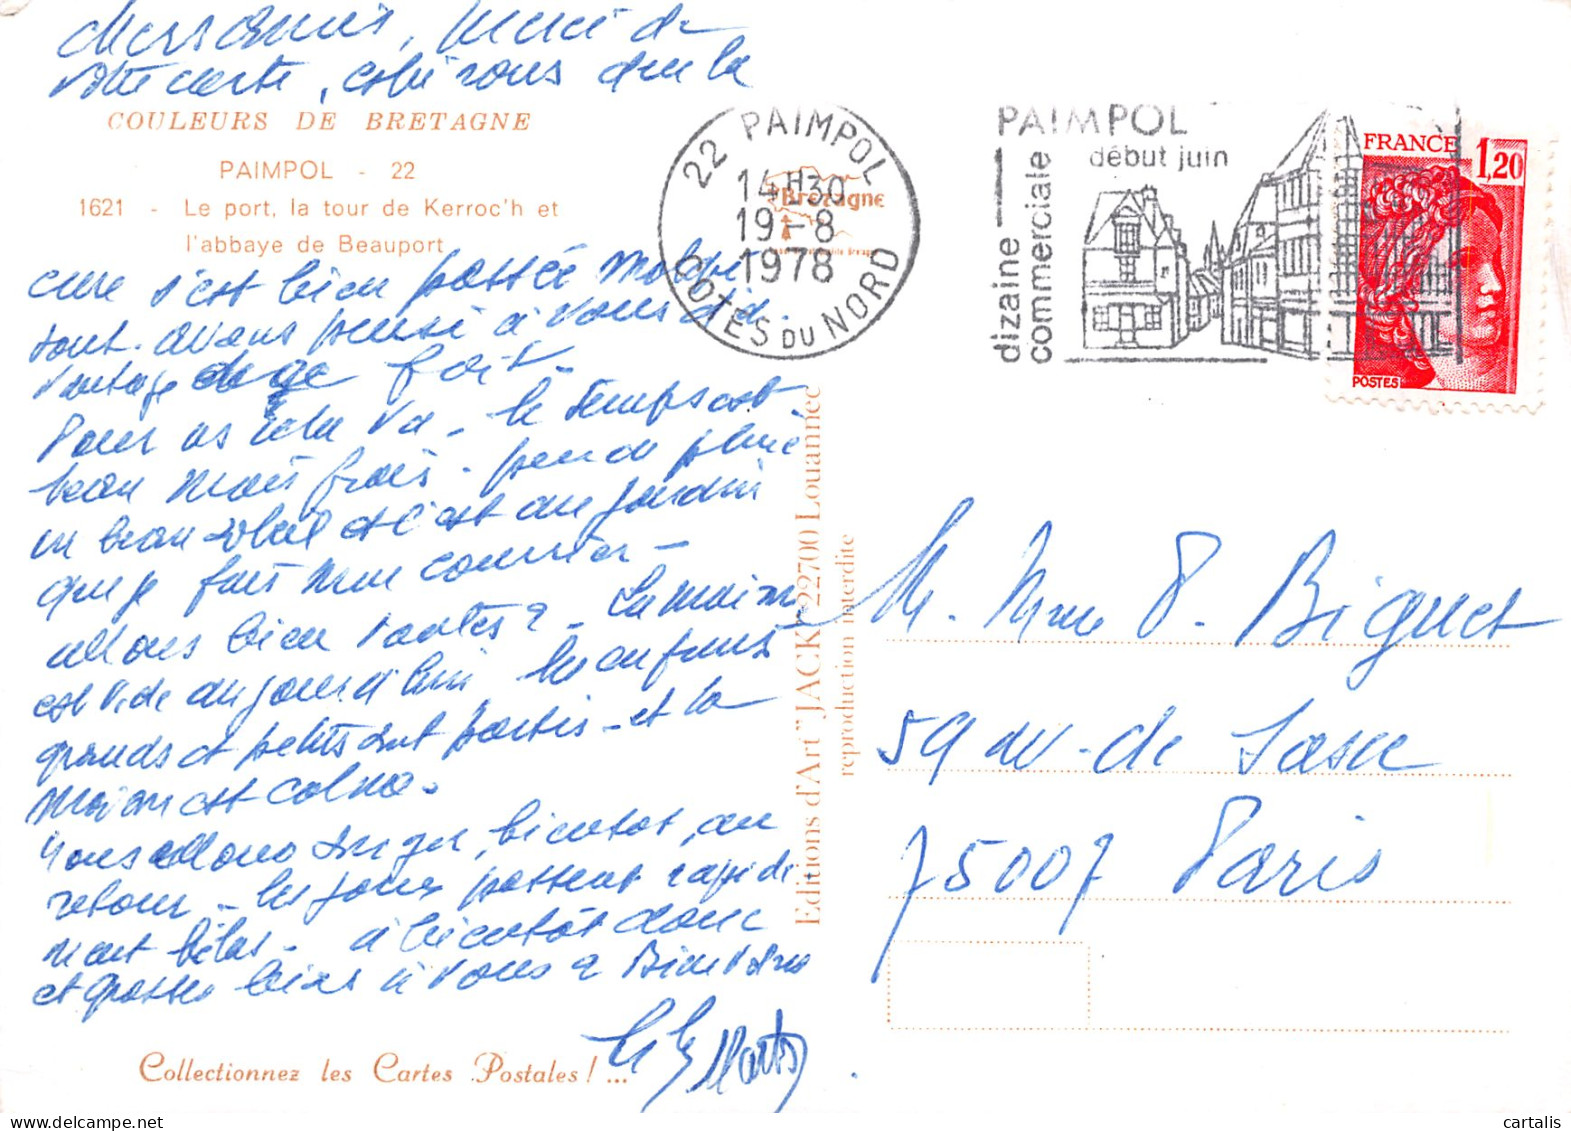 Chers Amis, Merci de
votre carte, celui vous dire la
COULEURS DE BRETAGNE
PAIMPOL - 22
1621 - Le port, la tour de Kerroc'h et
l'abbaye de Beauport
cure s'est bien passée
avons pensé à vous
fort -
Pour va - le temps est
beau mais frais - peu de pluie
un beau soleil et c'est au jardin
que je fais mon courrier -
allons bien toutes 2 - La maison
est vide aujourd'hui les enfants
grands et petits sont partis - et la
maison est calme.
Nous allons bientôt, au
retour - les jours passent rapide
ment hélas - à bientôt donc
et grosses bises à vous 2 Bien
Collectionnez les Cartes Postales ! ...
Editions d'Art "JACK" 22700 Louannec
reproduction interdite
Bretagne
22 PAIMPOL
14H30
19-8
1978
COTES DU NORD
PAIMPOL
début juin
dizaine
commerciale
FRANCE 1,20
POSTES
M. Mme P. Biguet
59 av. de Saxe
75007 Paris
cartalis